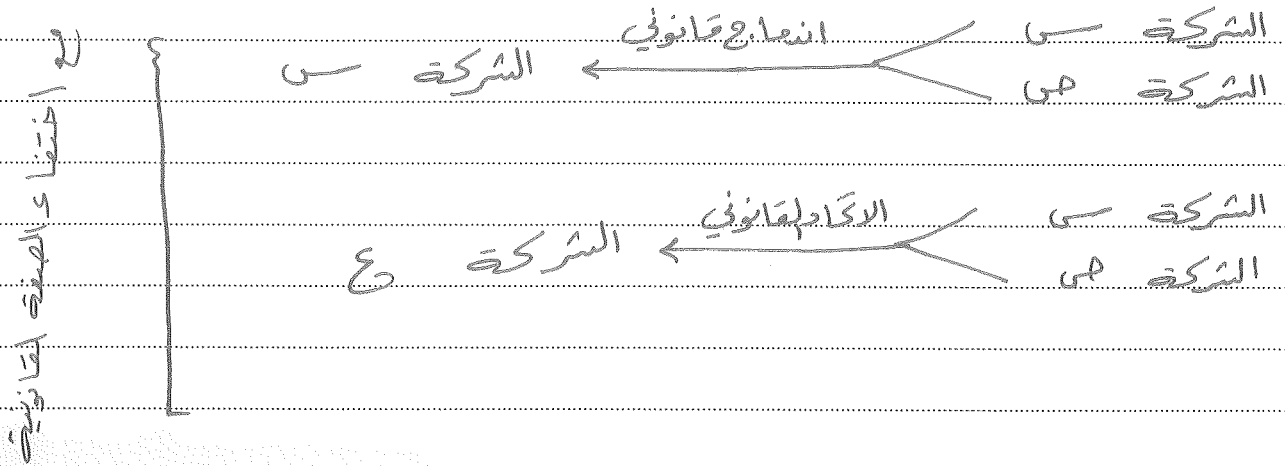 الشركة س
اندماج قانوني
الشركة س
الشركة ص
الشركة س
الاتحاد القانوني
الشركة ع
الشركة ص
اختفاء الصفة القانونية